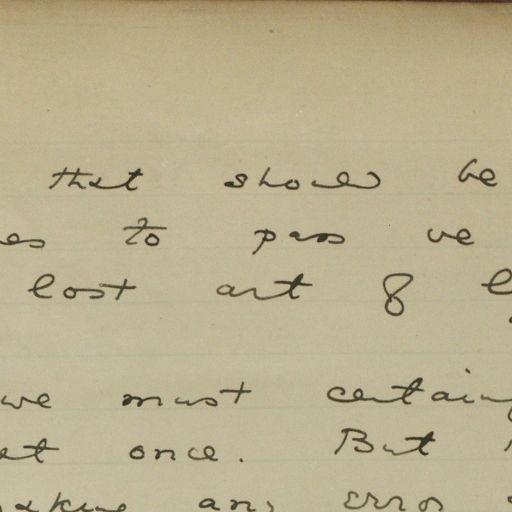 that should be
es to pass we
lost art of
we must certain
at once. But
making any error